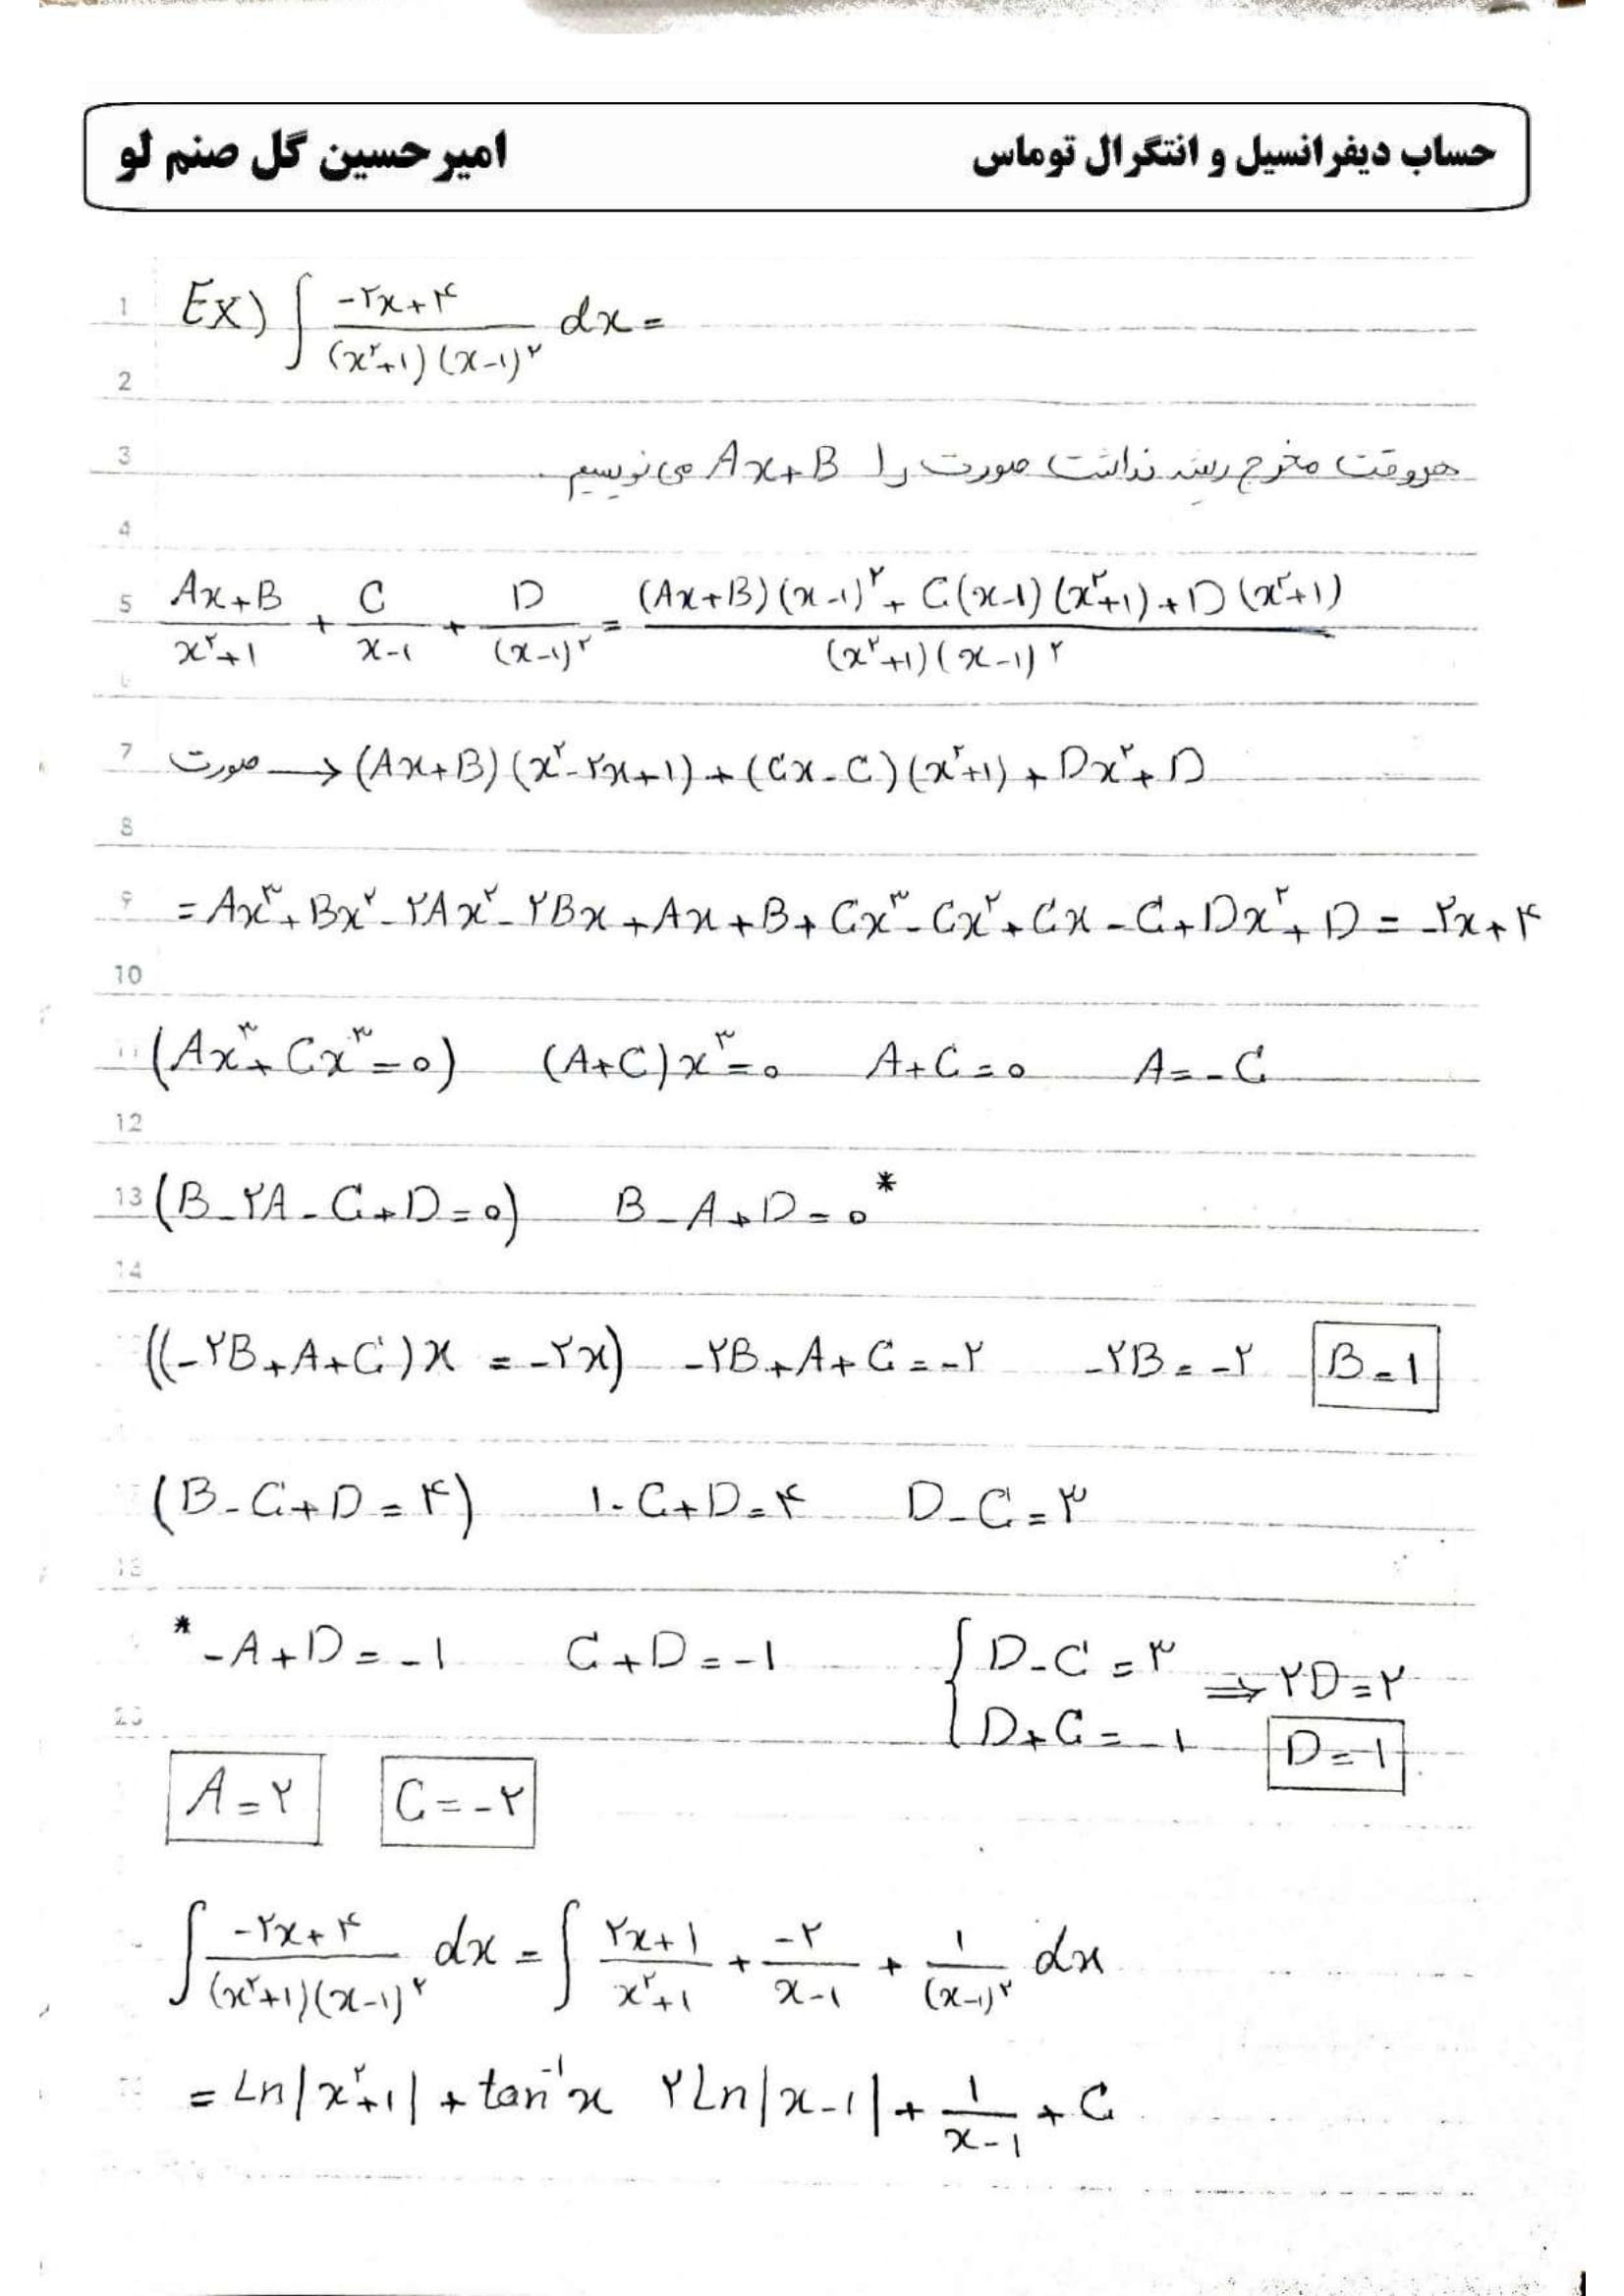 حساب دیفرانسیل و انتگرال توماس
امیرحسین گل صنم لو
1 EX) ∫ (-۲x+۴)/((x^۲+1)(x-1)^۲) dx =
2
3 هر وقت مخرج ریشه نداشت صورت را Ax+B می‌نویسیم.
4
5 (Ax+B)/(x^۲+1) + C/(x-1) + D/(x-1)^۲ = ((Ax+B)(x-1)^۲ + C(x-1)(x^۲+1) + D(x^۲+1))/((x^۲+1)(x-1)^۲)
6
7 صورت → (Ax+B)(x^۲-۲x+1)+(Cx-C)(x^۲+1)+Dx^۲+D
8
9 = Ax^۳+Bx^۲-۲Ax^۲-۲Bx+Ax+B+Cx^۳-Cx^۲+Cx-C+Dx^۲+D = -۲x+۴
10
11 (Ax^۳+Cx^۳=0) (A+C)x^۳=0 A+C=0 A=-C
12
13 (B-۲A-C+D=0) B-A+D=0*
14
((-۲B+A+C)x = -۲x) -۲B+A+C=-۲ -۲B=-۲ B=1
(B-C+D=۴) 1-C+D=۴ D-C=۳
18
* -A+D=-1 C+D=-1 { D-C=۳ ⇒ ۲D=۲
20 D+C=-1 D=1
A=۲ C=-۲
∫ (-۲x+۴)/((x^۲+1)(x-1)^۲) dx = ∫ (۲x+1)/(x^۲+1) + (-۲)/(x-1) + 1/(x-1)^۲ dx
= Ln|x^۲+1| + tan^-1 x ۲Ln|x-1| + 1/(x-1) + C